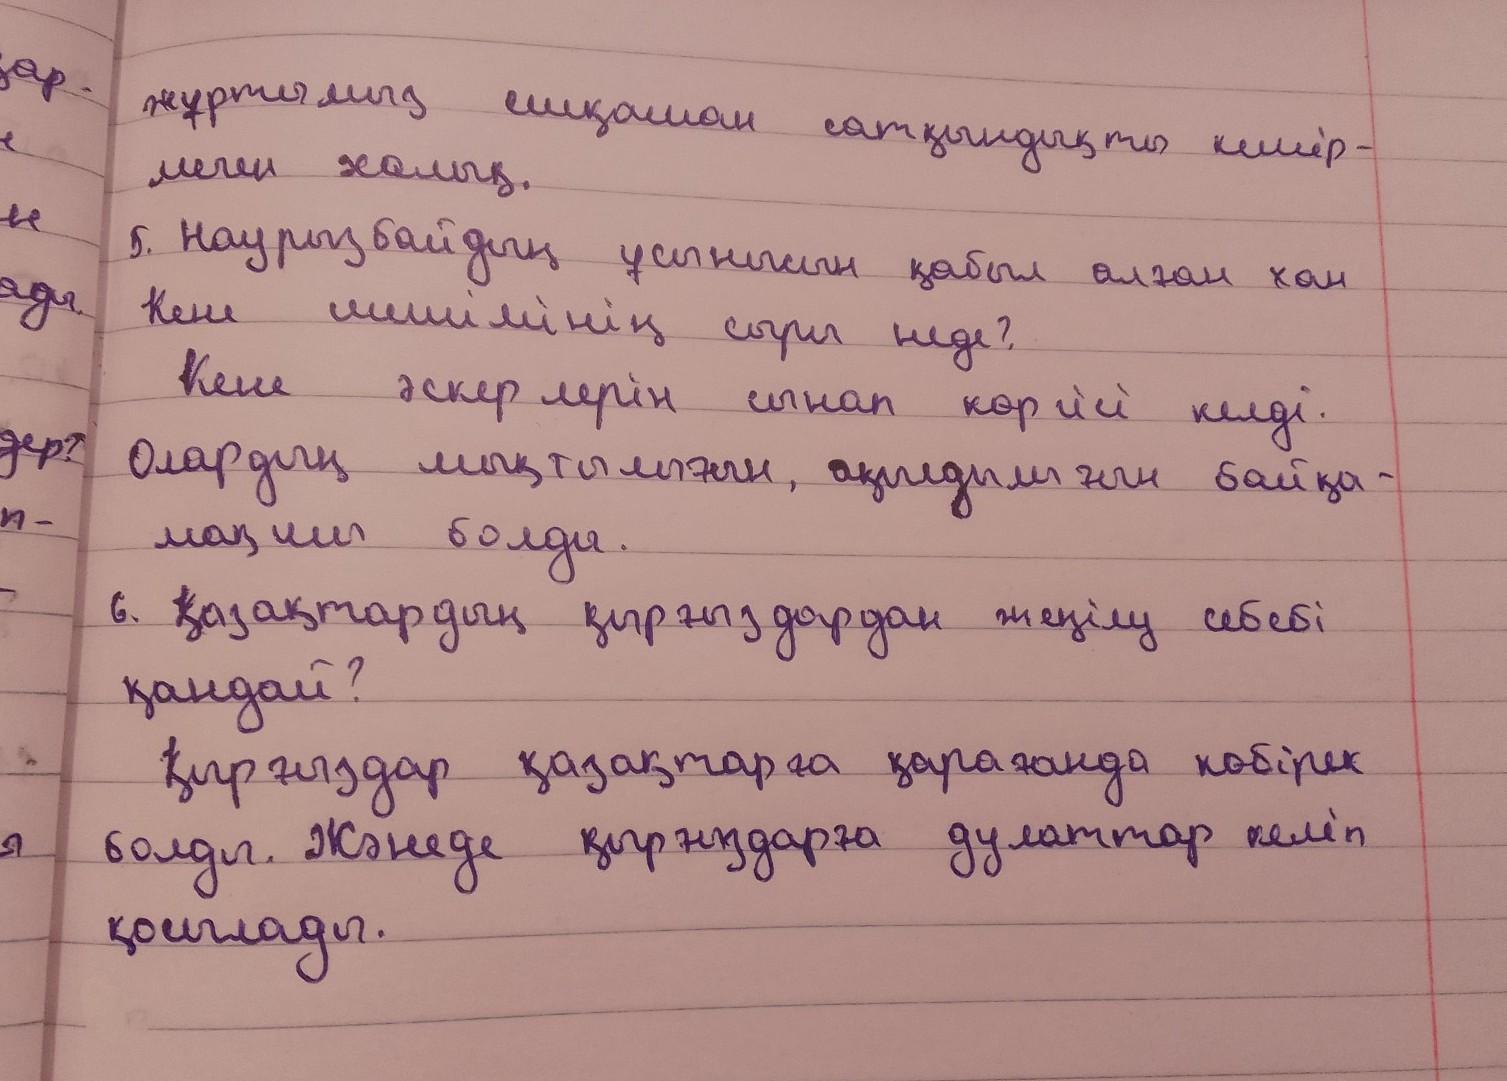 жұртымыз ешқашан сатқындықты кешір-
меген халық.
5. Наурызбайдың ұсынысын қабыл алған хан
Кене шешімінің сыры неде?
Кене әскерлерін сынап көргісі келді.
Олардың мықтылығын, ақылдылығын байқа-
мақшы болды.
6. Қазақтардың қырғыздардан жеңілу себебі
қандай?
Қырғыздар қазақтарға қарағанда көбірек
болды. Жәнеде қырғыздарға дулаттар келіп
қосылады.